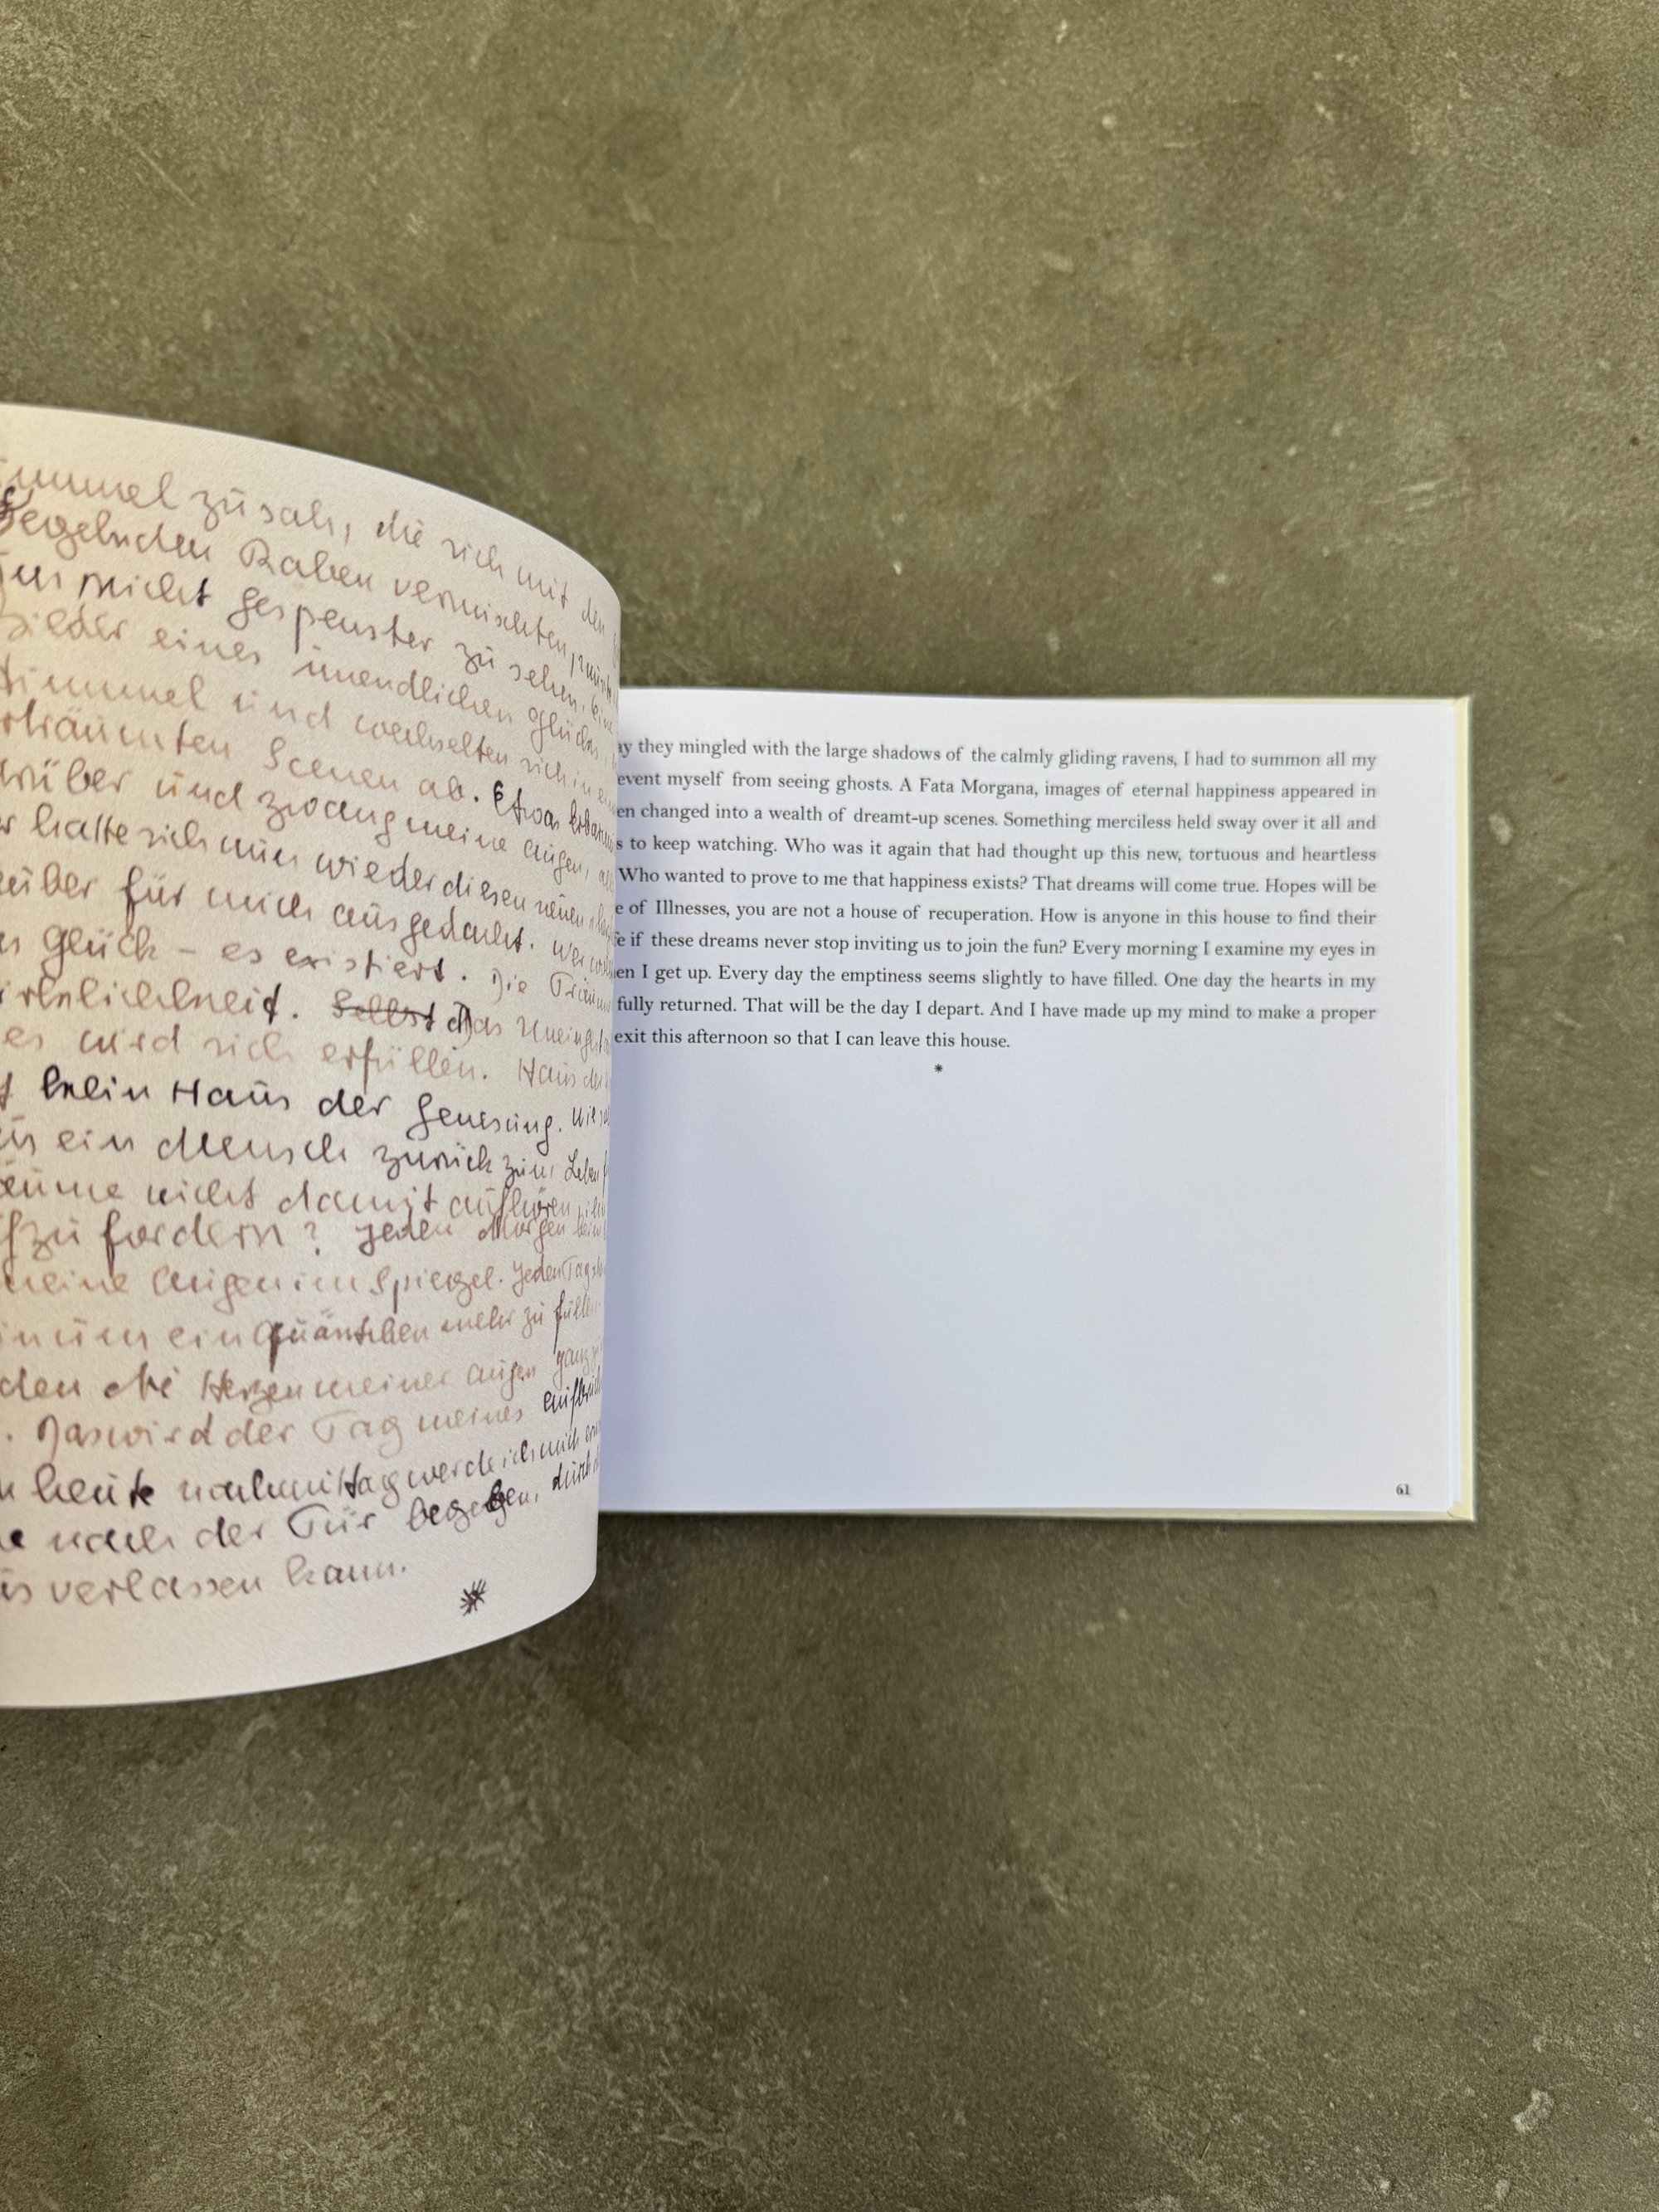 zusah, die sich mit den
Raben vermischten,
nicht gespenster zu sehen.
eines unendlichen glücks
und wechselten sich in
Scenen ab. Etwas
und zwang meine Augen,
hatte sich nun wieder diesen neuen
für mich ausgedacht. Wer
Glück - es existiert. Die
. Selbst Das
es wird sich erfüllen. Haus der
kein Haus der Genesung. Wie
ein Mensch zurück zum Leben
nicht damit aufhören,
fordern? Jeden Morgen beim
meine Augen im Spiegel. Jeden Tag
ein Quäntchen mehr zu füllen.
die Herzen meiner Augen ganz
. Das wird der Tag meines
heute nachmittag werde ich mich
nach der Tür begeben, durch
verlassen kann.
*
ay they mingled with the large shadows of the calmly gliding ravens, I had to summon all my
event myself from seeing ghosts. A Fata Morgana, images of eternal happiness appeared in
en changed into a wealth of dreamt-up scenes. Something merciless held sway over it all and
s to keep watching. Who was it again that had thought up this new, tortuous and heartless
Who wanted to prove to me that happiness exists? That dreams will come true. Hopes will be
e of Illnesses, you are not a house of recuperation. How is anyone in this house to find their
fe if these dreams never stop inviting us to join the fun? Every morning I examine my eyes in
en I get up. Every day the emptiness seems slightly to have filled. One day the hearts in my
fully returned. That will be the day I depart. And I have made up my mind to make a proper
exit this afternoon so that I can leave this house.
*
61